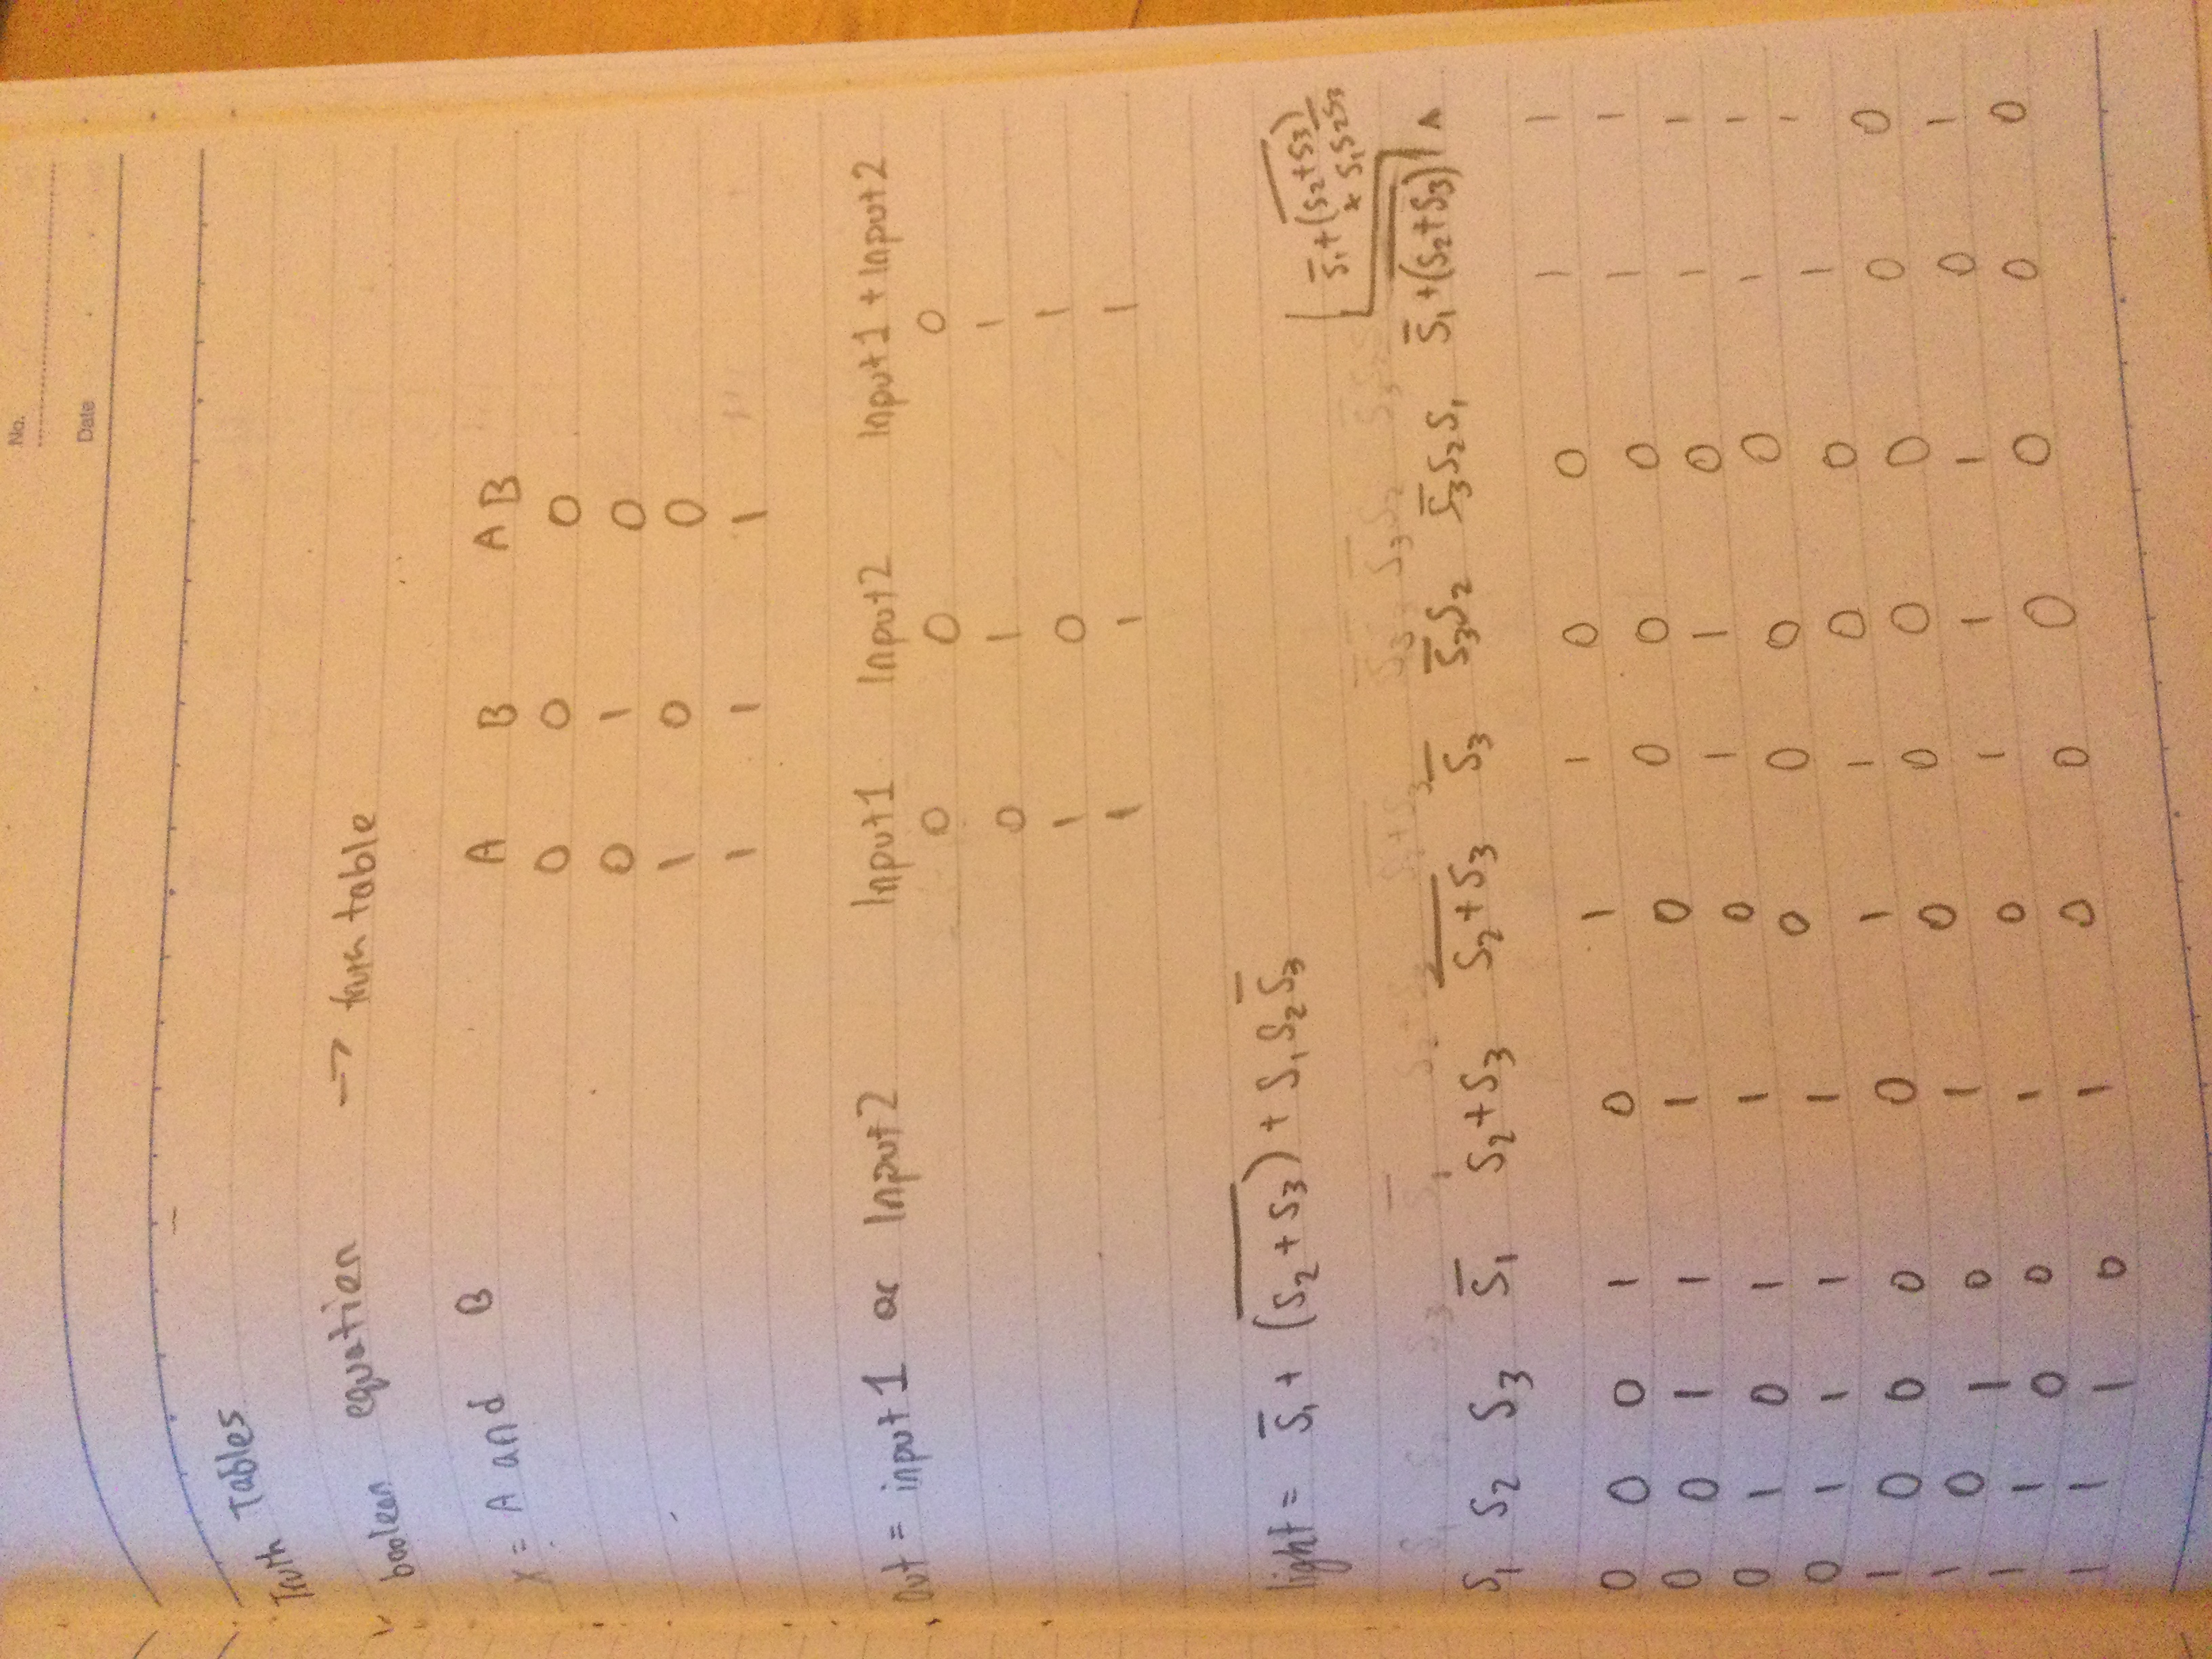 No.
Date
Truth Tables
boolean equation → truth table
x = A and B
A B AB
0 0 0
0 1 0
1 0 0
1 1 1
out = input 1 or Input 2
Input 1 Input 2 Input 1 + Input 2
0 0 0
0 1 1
1 0 1
1 1 1
light = S̅₁ + (S₂ + S₃)̅ + S₁ S₂ S̅₃
S̅₁ + (S₂+S₃)̅
+ S₁S₂S̅₃
S₁ S₂ S₃ S̅₁ S₂+S₃ S̅₂̅+̅S̅₃ S̅₃ S̅₃S₂ S̅₃S₂S₁ S̅₁+(S₂+S₃)̅ ^
0 0 0 1 0 1 1 0 0 1 1
0 0 1 1 1 0 0 0 0 1 1
0 1 0 1 1 0 1 1 0 1 1
0 1 1 1 1 0 0 0 0 1 1
1 0 0 0 0 1 1 0 0 1 1
1 0 1 0 1 0 0 0 0 0 0
1 1 0 0 1 0 1 1 1 0 1
1 1 1 0 1 0 0 0 0 0 0